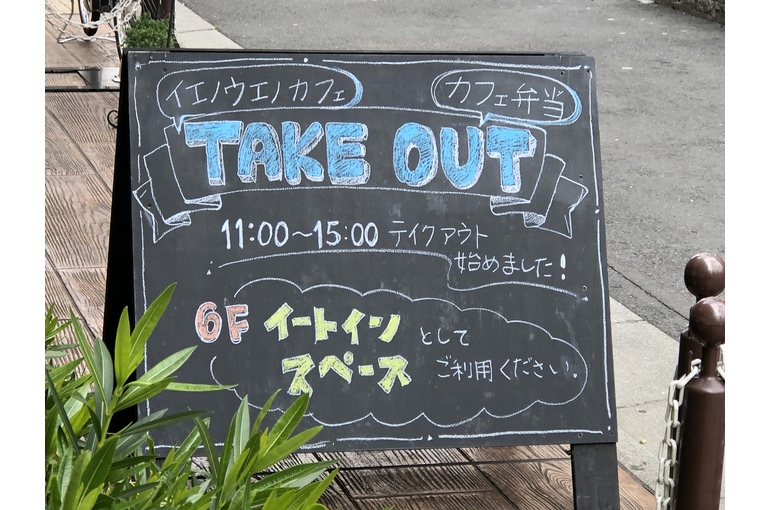 イエノウエノカフェ カフェ弁当
TAKE OUT
11:00~15:00 テイクアウト
始めました!
6F イートイン として
スペース ご利用ください.